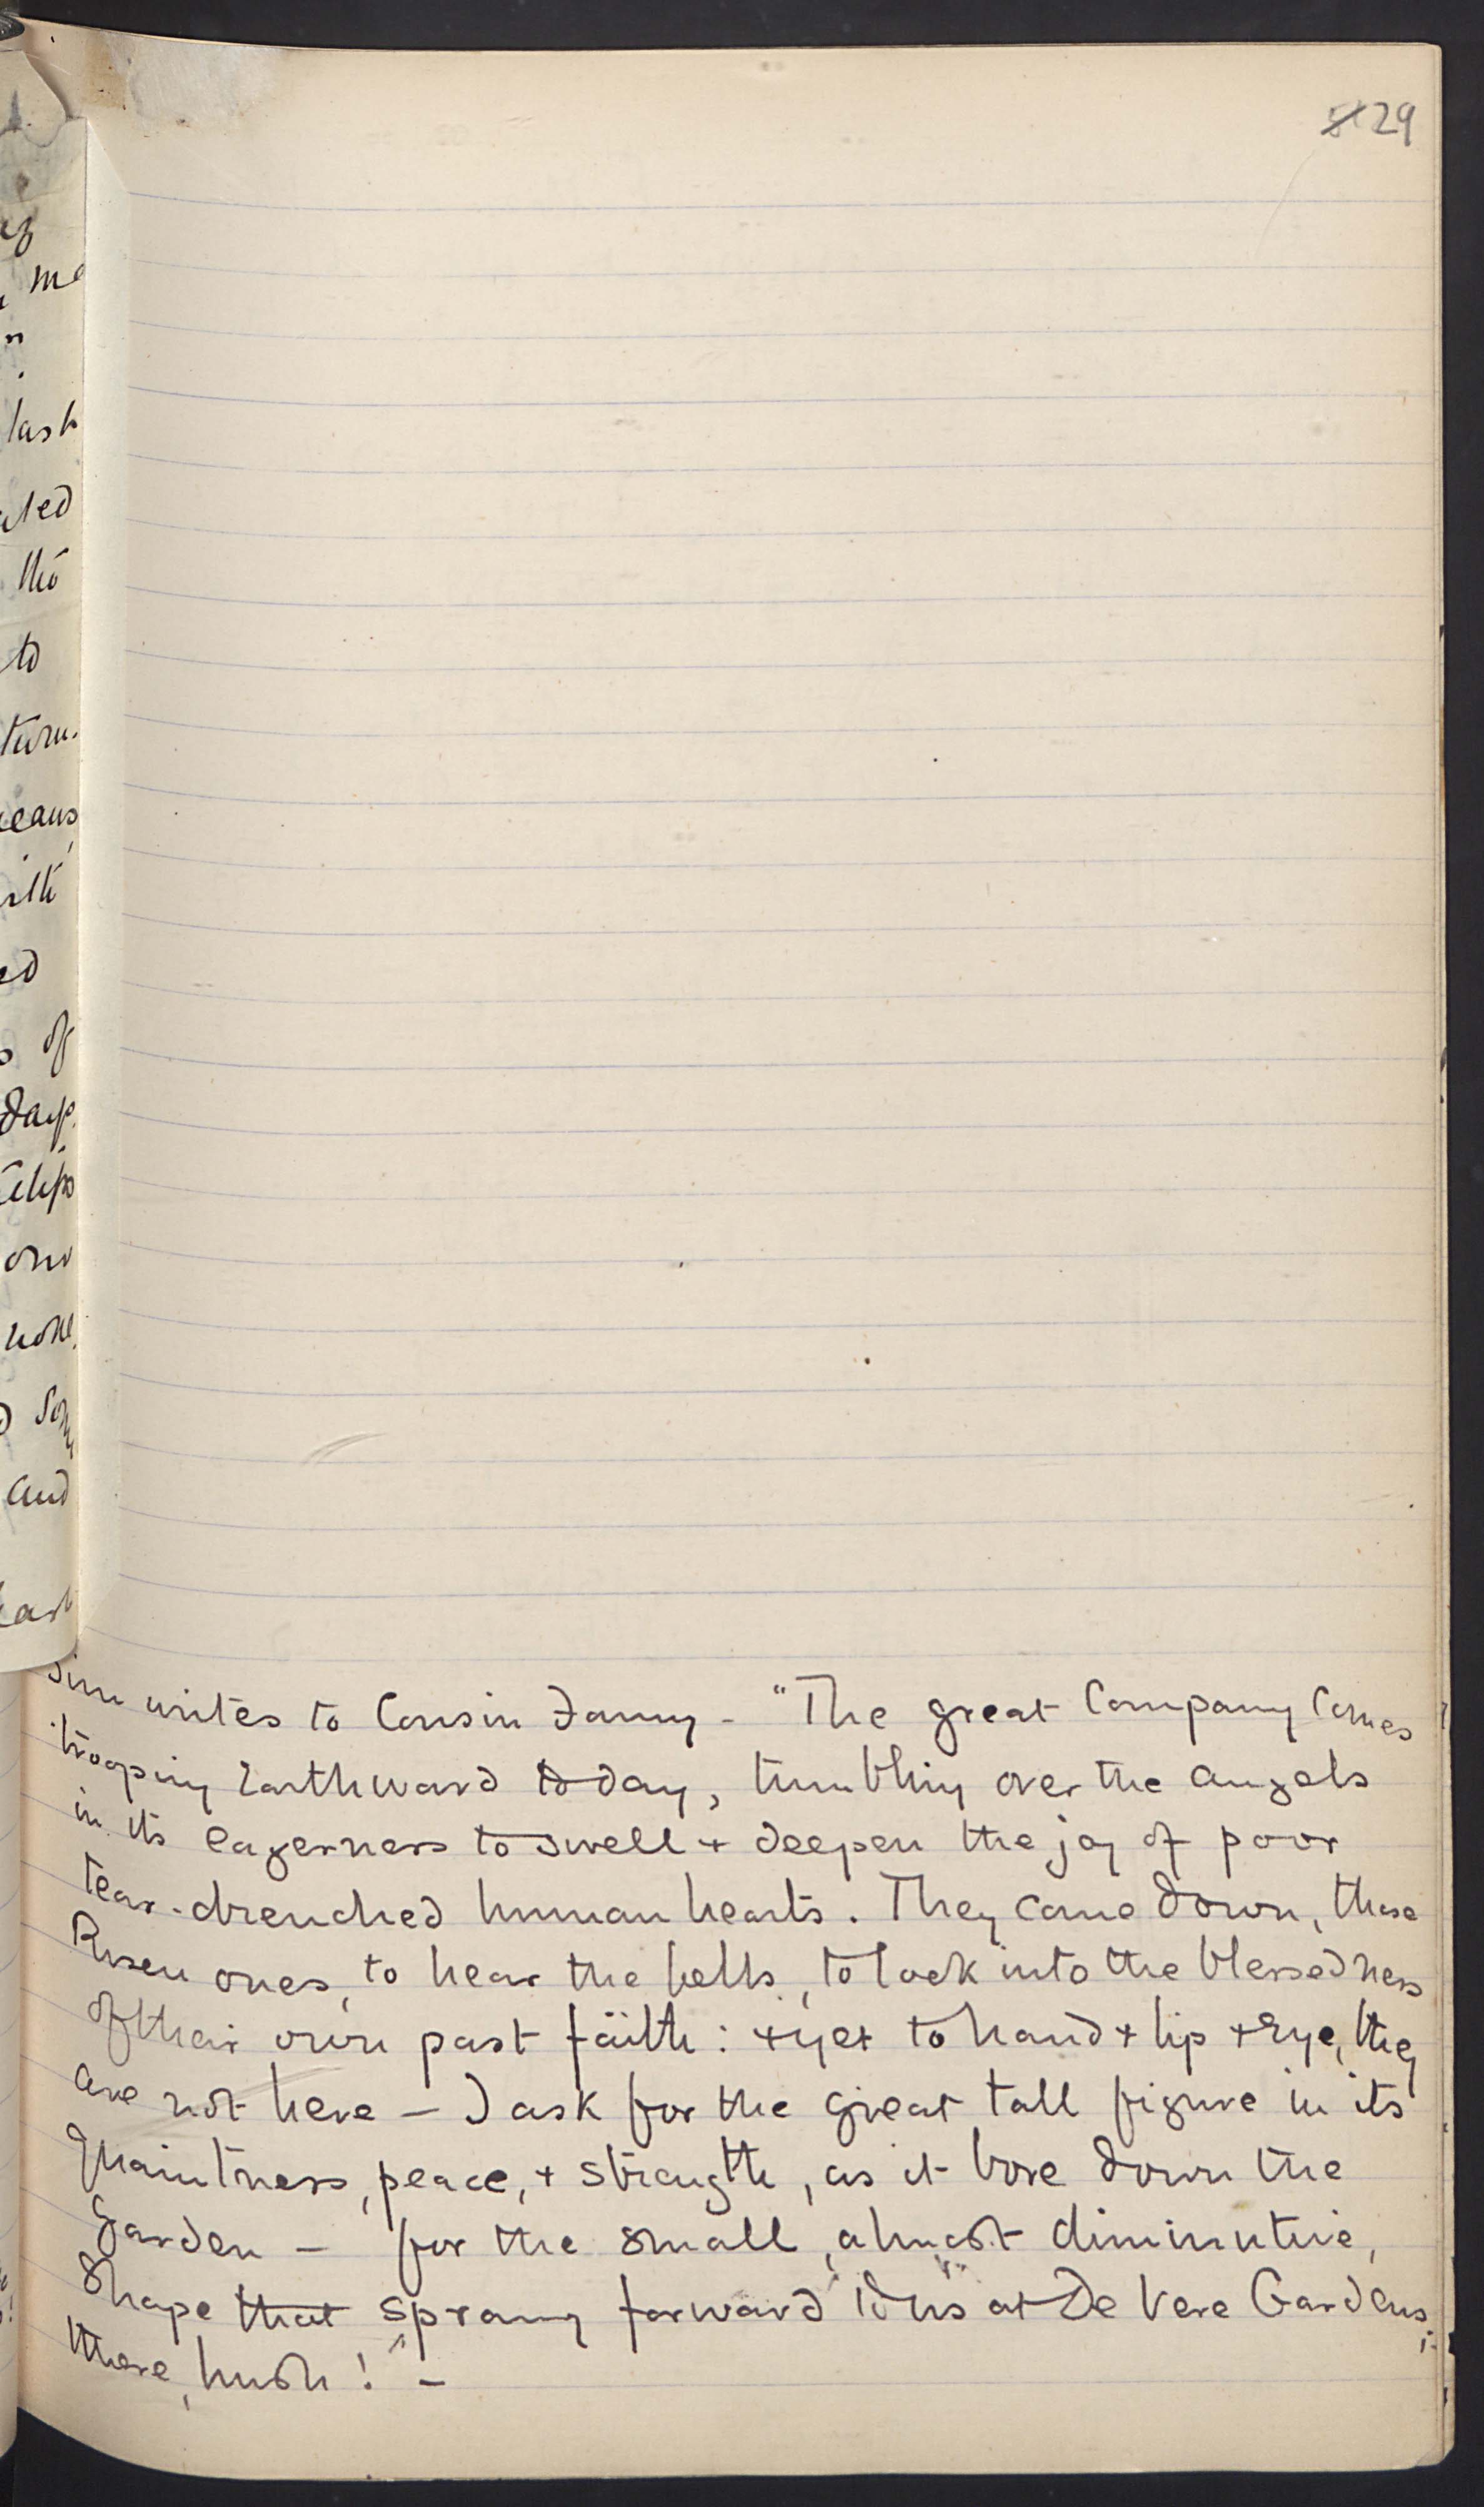 29
Sim writes to Cousin Fanny - "The great Company comes
trooping Earthward to day, tumbling over the angels
in its eagerness to swell + deepen the joy of poor
tear-drenched human hearts. They come down, these
Risen ones, to hear the bells, to look into the blessedness
of their own past faith: + yet to hand + lip + Eye, they
are not here - I ask for the great tall figure in its
Quaintness, peace, + strength, as it bore down the
Garden - for the small, almost diminutive,
Shape that sprang forward to us at De Vere Gardens;
there, hush!" -
me
last
ted
the
to
turn.
ed
of
days.
one
none
Some
and